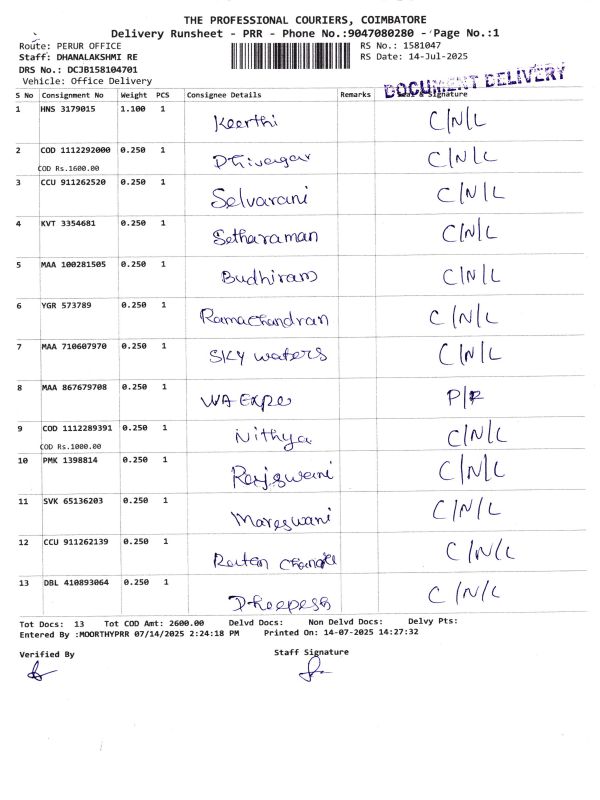 THE PROFESSIONAL COURIERS, COIMBATORE
Delivery Runsheet - PRR - Phone No.:9047080280 - Page No.:1
Route: PERUR OFFICE RS No.: 1581047
Staff: DHANALAKSHMI RE RS Date: 14-Jul-2025
DRS No.: DCJB158104701
Vehicle: Office Delivery
DOCUMENT DELIVERY
S No Consignment No Weight PCS Consignee Details Remarks Signature
1 HNS 3179015 1.100 1 Keerthi C/N/L
2 COD 1112292000 0.250 1 Dhivagar C/N/L
COD Rs.1600.00
3 CCU 911262520 0.250 1 Selvarani C/N/L
4 KVT 3354681 0.250 1 Setharaman C/N/L
5 MAA 100281505 0.250 1 Budhiram C/N/L
6 YGR 573789 0.250 1 Ramachandran C/N/L
7 MAA 710607970 0.250 1 SKY waters C/N/L
8 MAA 867679708 0.250 1 WA Expo P/R
9 COD 1112289391 0.250 1 Nithya C/N/L
COD Rs.1000.00
10 PMK 1398814 0.250 1 C/N/L
11 SVK 65136203 0.250 1 Mareswani C/N/L
12 CCU 911262139 0.250 1 C/N/L
13 DBL 410893064 0.250 1 Dheepesh C/N/L
Tot Docs: 13 Tot COD Amt: 2600.00 Delvd Docs: Non Delvd Docs: Delvy Pts:
Entered By :MOORTHYPRR 07/14/2025 2:24:18 PM Printed On: 14-07-2025 14:27:32
Verified By Staff Signature